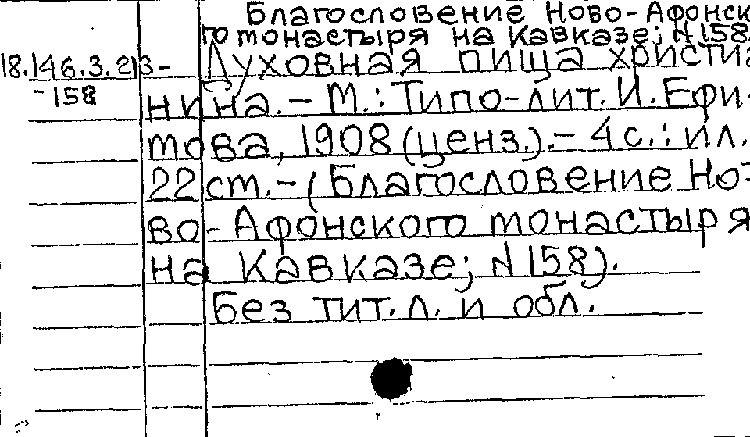 Благословение Ново-Афонск
го монастыря на Кавказе; N 158
18.146.3.213- Духовная пища христиа
-158
нина. - М.: Типо-лит. И. Ефи-
мова, 1908 (ценз.). - 4 с.: ил.
22 см. - (Благословение Но-
во-Афонского монастыря
на Кавказе; N 158).
Без тит. л. и обл.